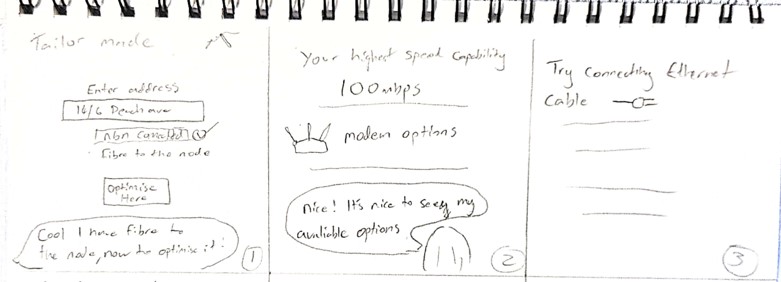 Tailor made
Enter address
14/6 Peach ave
nbn connected
Fibre to the node
Optimise
Here
Cool I have fibre to
the node, now to optimise it!
1
Your highest speed capability
100mbps
modem options
Nice! It's nice to see my
avaliable options
2
Try connecting Ethernet
Cable
3